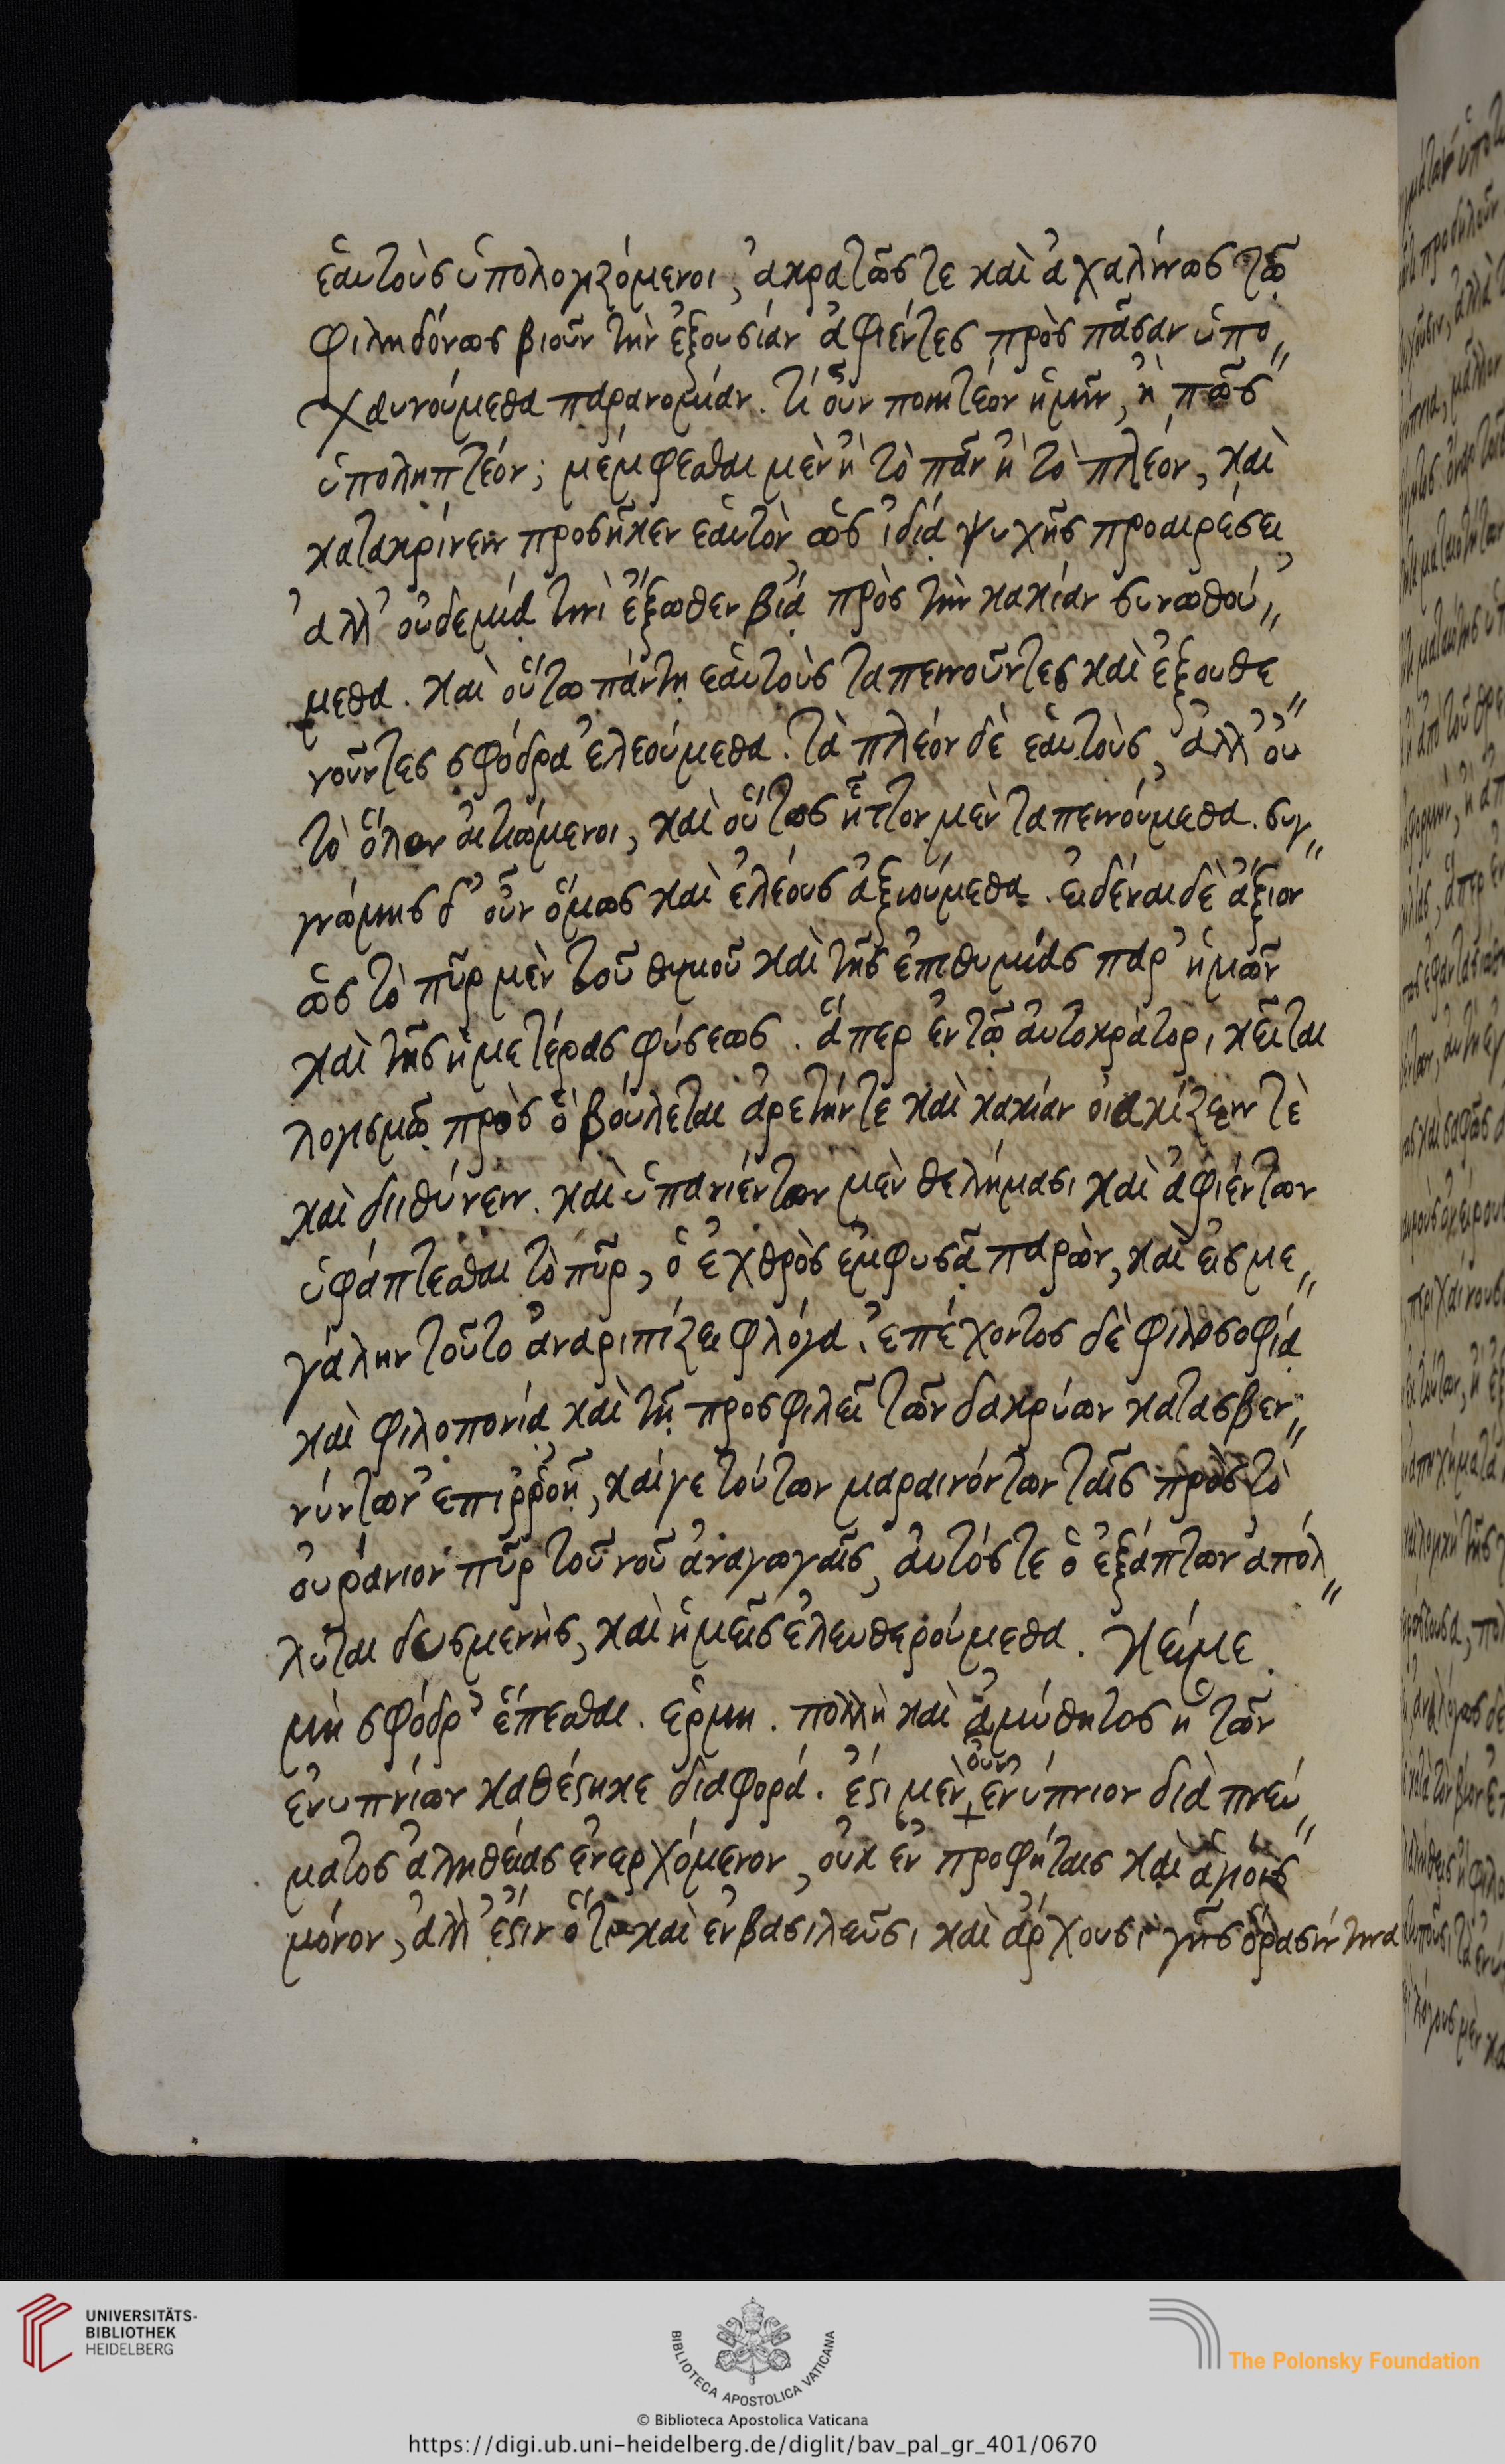 ἑαυτοὺς ὑπολογιζόμενοι, ἀκρατῶς τε καὶ ἀχαλίνως τῶ
φιληδόνως βιοῦν τὴν ἐξουσίαν ἀφιέντες πρὸς πᾶσαν ὑπο
χαυνούμεθα παρανομίαν. τί οὖν ποιητέον ἡμῖν, ἢ πῶς
ὑποληπτέον; μέμφεσθαι μὲν ἢ τὸ πᾶν ἢ τὸ πλέον, καὶ
κατακρίνειν προσῆκεν ἑαυτὸν, ὡς ἰδία ψυχῆς προαιρέσει
ἀλλ' οὐδεμιᾷ τινὶ ἔξωθεν βίᾳ πρὸς τὴν κακίαν συνωθού
μεθα. καὶ οὕτω πάντη ἑαυτοὺς ταπεινοῦντες καὶ ἐξουθε
νοῦντες σφόδρα ἐλεούμεθα. τὰ πλέον δὲ ἑαυτοὺς, ἀλλ' οὐ
τὸ ὅλον αἰτιώμενοι, καὶ οὕτως ἧττον μὲν ταπεινούμεθα. συγ
γνώμης δ' οὖν ὅμως καὶ ἐλέους ἀξιούμεθα. εἰδέναι δὲ ἄξιον
ὡς τὸ πῦρ μὲν τοῦ θυμοῦ καὶ τῆς ἐπιθυμίας παρ' ἡμῶν
καὶ τῆς ἡμετέρας φύσεως. ἅπερ ἐν τῶ αὐτοκράτορι κεῖται
λογισμῶ πρὸς ὃ βούλεται ἀρετήν τε καὶ κακίαν οἰακίζειν τὲ
καὶ διιθύνειν. καὶ ὑπανιέντων μὲν θελήμασι καὶ ἀφιέντων
ὑφάπτεσθαι τὸ πῦρ, ὁ ἐχθρὸς ἐμφυσᾷ παρὼν, καὶ εἰς με
γάλην τοῦτο ἀναριπίζει φλόγα. ἐπέχοντος δὲ φιλοσοφίᾳ
καὶ φιλοπονίᾳ καὶ τῇ προσφιλεῖ τῶν δακρύων κατασβεν
νύντων ἐπιῤῥοῇ, καίγε τούτων μαραινόντων ταῖς πρὸς τὸ
οὐράνιον πῦρ τοῦ νοῦ ἀναγωγαῖς, αὐτός τε ὁ ἐξάπτων ἀπόλ
λυται δυσμενὴς, καὶ ἡμεῖς ἐλευθερούμεθα. κείμε
μὴ σφόδρ' ἕπεσθαι. ἑρμη. πολλὴ καὶ ἀμύθητος ἡ τῶν
ἐνυπνίων καθέστηκε διαφορά. ἔστι μὲν οὖν ἐνύπνιον διὰ πνεύ
ματος ἀληθείας ἐνερχόμενον, οὐκ ἐν προφήταις καὶ ἁγίοις
μόνον, ἀλλ' ἔστιν ὅτε καὶ ἐν βασιλεῦσι καὶ ἄρχουσι γῆς ὅρασίν τινα
UNIVERSITÄTS-
BIBLIOTHEK
HEIDELBERG
BIBLIOTECA APOSTOLICA VATICANA
The Polonsky Foundation
© Biblioteca Apostolica Vaticana
https://digi.ub.uni-heidelberg.de/diglit/bav_pal_gr_401/0670